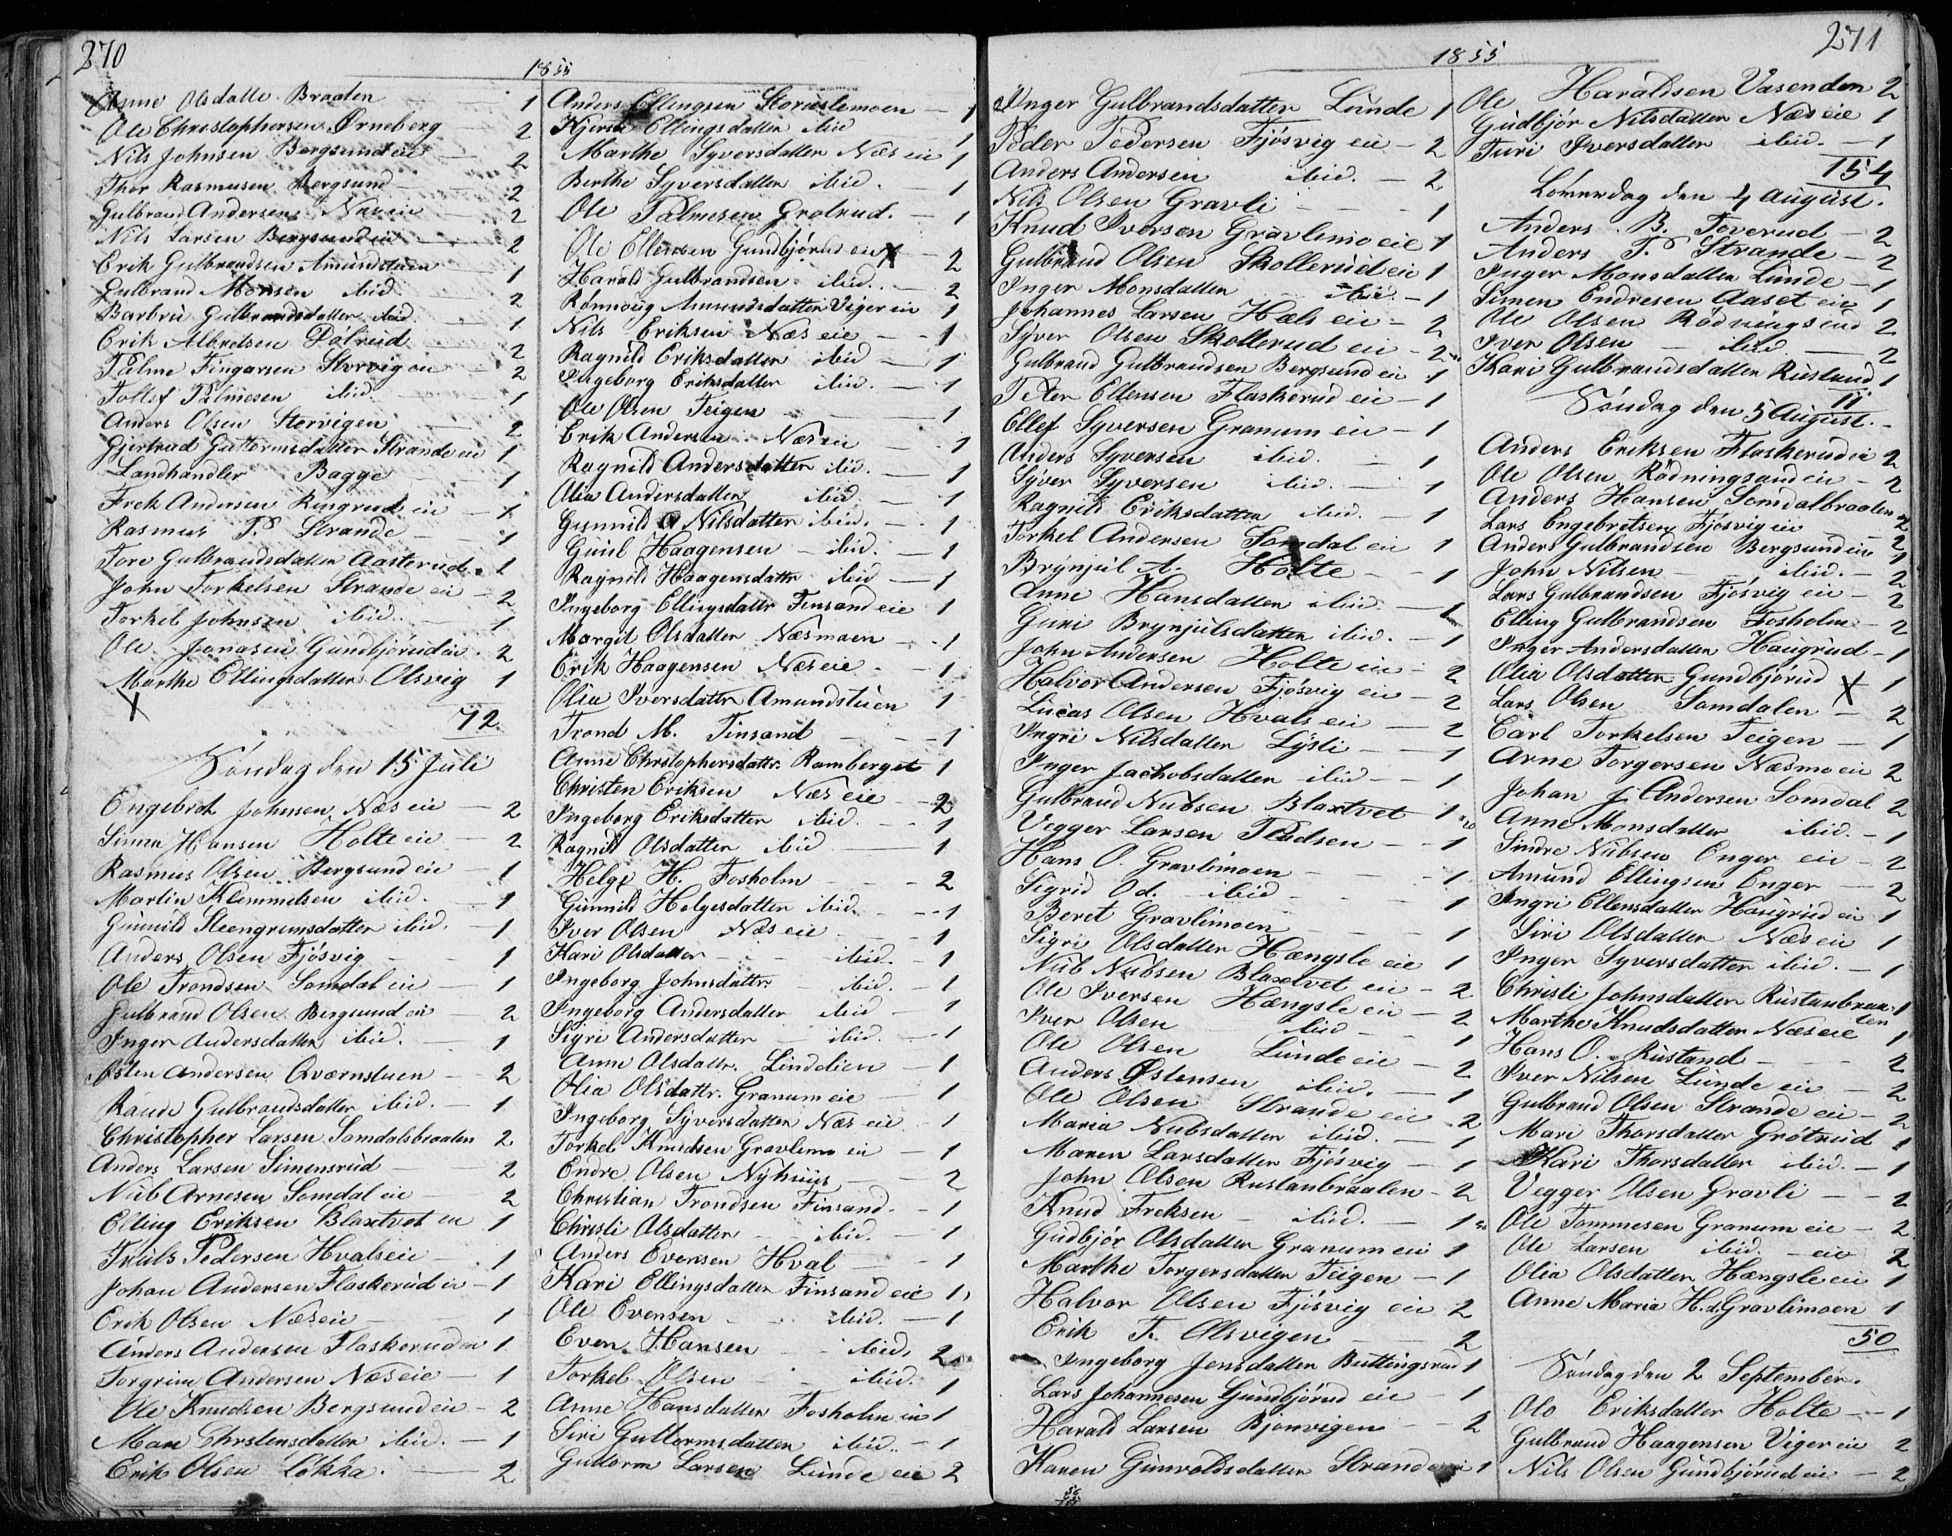 270
1855
Anne Olsdatte Braaten 1
Ole Christophersen Ørneberg 2
Nils Johnsen Bergsund eie 2
Thor Rasmusen Bergsund 2
Gulbrand Andersen Næs eie 2
Nils Larsen Bergsund ei 2
Erik Gulbrandsen Amundstuen 1
Gulbrand Monsen ibid. 2
Barbru Gulbrandsdatter ibid. 1
Erik Albretsen Pålrud 2
Palme Fingarsen Storvig en 2
Tollef Palmesen ibid. 1
Anders Olsen Storvigen 2
Gjertrud Guttormsdatter Strande eie 1
Landhandler Bagge 1
Frek Andersen Ringrud eie 1
Rasmus P. Strande 1
Tore Gulbrandsdatter Aasterud 1
John Torkelsen Strande ei 2
Torkel Johnsen ibid. 1
Ole Jonasen Gundbjørud eie 2
Marthe Ellingsdatter Olsvig 1
X
72
Søndag den 15 Juli
Engebret Johnsen Næs eie 2
Simen Hansen Holte eie 2
Rasmus Olsen Bergsund eie 1
Martin Klemmetsen ibid. 1
Gunnild Steengrimsdatter ibid. 1
Anders Olsen Fjøsvig 1
Ole Trondsen Somdal eie 1
Gulbrand Olsen Bergsund ei 2
Inger Andersdatter ibid. 1
Østen Andersen Qværnstuen 2
Randi Gulbrandsdatter ibid. 1
Christopher Larsen Somdalsbraaten 2
Anders Larsen Simensrud 2
Nub Arnesen Somdal eie 2
Elling Eriksen Blaxtvet ei 1
Truls Pedersen Hvals eie 1
Johan Andersen Flaskerud ei 1
Erik Olsen Næs eie 1
Anders Andersen Flaskerud ei 1
Torgrim Andersen Næs eie 1
Ole Knudsen Bergsund eie 2
Mari Christensdatter ibid. 1
Erik Olsen Løkka. 2
Anders Ellingsen Storuslemoen 1
Kjersti Ellingsdatter ibid 1
Marthe Syversdatter Næs eie 1
Berthe Syversdatter ibid. 1
Ole Palmesen Grøtrud. 1
Ole Ellensen Gundbjørud eie X 2
Harald Gulbrandsen ibid. 2
Rønnoug Amundsdatter Viger ein 1
Nils Eriksen Næs eie 1
Ragnild Eriksdatter ibid 1
Ingeborg Eriksdatter ibid. 1
Ole Olsen Teigen 1
Erik Andersen Næs eie 1
Ragnild Andersdatter ibid. 1
Olia Andersdatter ibid. 1
Gunnild Nilsdatter ibid. 1
Guul Haagensen ibid. 1
Ragnild Haagensdattr ibid 1
Ingeborg Ellingsdattr Finsand eie 1
Margit Olsdatter Næsmoen 1
Erik Haagensen Næs eie 1
Olia Iversdatter Amundstuen 1
Trond M. Finsand 1
Anne Christophersdattr. Ramberget 1
Christen Eriksen Næs eie 2
Ingeborg Eriksdatter ibid. 1
Ragnild Olsdatter ibid 1
Helge H. Fosholm 2
Gunnild Helgesdatter ibid. 1
Iver Olsen Næs eie 1
Kari Olsdatter ibid. 1
Ingeborg Johnsdattr. ibid. 1
Ingeborg Andersdatter ibid 1
Sigri Andersdatter ibid. 1
Anne Olsdattr. Lindelien 1
Olia Olsdattr. Granum eie 1
Ingeborg Syversdatter Næs eie 1
Torkel Knudsen Gravlimo ei 1
Endre Olsen Nyhuus 2
Christian Trondsen Finsand 1
Christi Olsdatter ibid. 1
Anders Evensen Hval 1
Kari Ellingsdatter Finsand eie 1
Ole Evensen ibid. 1
Even Hansen ibid. 2
Torkel Olsen ibid. 1
Anne Hansdatter Fosholm ei 1
Siri Guttormsdatter ibid. 1
Guttorm Larsen Lunde eie 2
271
1855
Inger Gulbrandsdatter Lunde 1
Peder Pedersen Fjøsvig eie 2
Anders Andersen ibid. 2
Nils Olsen Gravli 1
Knud Iversen Gravlimo eie 1
Gulbrand Olsen Skollerud eie 1
Inger Monsdatter ibid. 1
Johannes Larsen Hæls eie 2
Syver Olsen Skollerud eie 2
Gulbrand Gulbrandsen Bergsund ei 1
Peter Ellensen Flaskerud eie 1
Ellef Syversen Granum eie 1
Anders Syversen ibid. 1
Syver Syversen ibid. 1
Ragnild Eriksdatter ibid. 1
Torkel Andersen Somdal eie 1
Brynjul A. Holte 1
Anne Hansdatter ibid. 1
Guri Brynjulsdatter ibid. 1
John Andersen Holte eie 2
Halvor Andersen Fjøsvig eie 2
Lucas Olsen Hvals eie 2
Ingri Nilsdatter Lysli 1
Inger Jachobsdatter ibid 1
Gulbrand Nubsen Blaxtvet 1
Vegger Larsen Pladsen 1
Hans O. Gravlimoen 1
Sigrid Od. ibid 1
Beret Gravlimoen 1
Sigri Olsdatter Hængsle eie 1
Nub Nubsen Blaxtvet eie 2
Ole Iversen Hængsle eie 2
Iver Olsen ibid 1
Ole Olsen Lunde eie 2
Anders Østensen ibid. 1
Ole Olsen Strande eie 2
Maria Nubsdatter ibid. 1
Maren Larsdatter Fjøsvig 1
John Olsen Rustanbraaten 2
Knud Freksen ibid. 1
Gudbjør Olsdatter Granum eie 1
Marthe Torgersdatter Teigen 1
Halvor Olsen Fjøsvig eie 2
Erik T. Olsvigen 2
Ingeborg Jensdatter Buttingsrud 1
Lars Johannesen Gundbjørud eie 1
Harald Larsen Bjonvigen 2
Karen Gunvoldsdatter Strande ei 1
Ole Haraldsen Vasenden 2
Gudbjør Nilsdatter Næs eie 1
Turi Iversdatter ibid. 1
154
Løverdag den 4 August.
Anders B. Toverud 2
Anders P. Strande 2
Inger Monsdatter Lunde 1
Simen Endresen Aaset eie 1
Ole Olsen Rødningsand 2
Iver Olsen ibid 2
Kari Gulbrandsdatter Rustand 1
11
Søndag den 5 August.
Anders Eriksen Flaskerud ei 2
Ole Olsen Rødningsand ei 2
Anders Hansen Somdalbraaten 2
Lars Engebretsen Fjøsvig eie 2
Anders Gulbrandsen Bergsund eie 1
John Nilsen ibid. 2
Lars Gulbrandsen Fjøsvig eie 2
Elling Gulbrandsen Fosholm 2
Inger Andersdatter Haugrud 1
Olia Olsdatter Gundbjørud X 1
Lars Olsen Somdalen 2
Carl Torkelsen Teigen 1
Arne Torgersen Næsmo eie 2
Johan J. Andersen Somdal 2
Anne Monsdatter ibid. 1
Sindre Nubsen Enger eie 2
Amund Ellingsen Enger 2
Ingri Ellensdatter Haugrud ei 1
Siri Olsdatter Næs eie 1
Inger Syversdatter ibid. 1
Christi Johnsdatter Rustanbraaten 1
Marthe Knudsdatter Næs eie 1
Hans O. Rustand 2
Iver Nilsen Lunde eie 2
Gulbrand Olsen Strande eie 2
Mari Thorsdatter Grøtrud 1
Kari Thorsdatter ibid. 1
Vegger Olsen Gravli 2
Ole Tommesen Granum eie 2
Ole Larsen ibid. eie 2
Olia Olsdatter Hængsle eie 1
Anne Maria H.d. Gravlimoen 1
50
Søndag den 2 September.
Olo Eriksdatter Holte 1
Gulbrand Haagensen Viger eie 2
Nils Olsen Gundbjørud eie 2